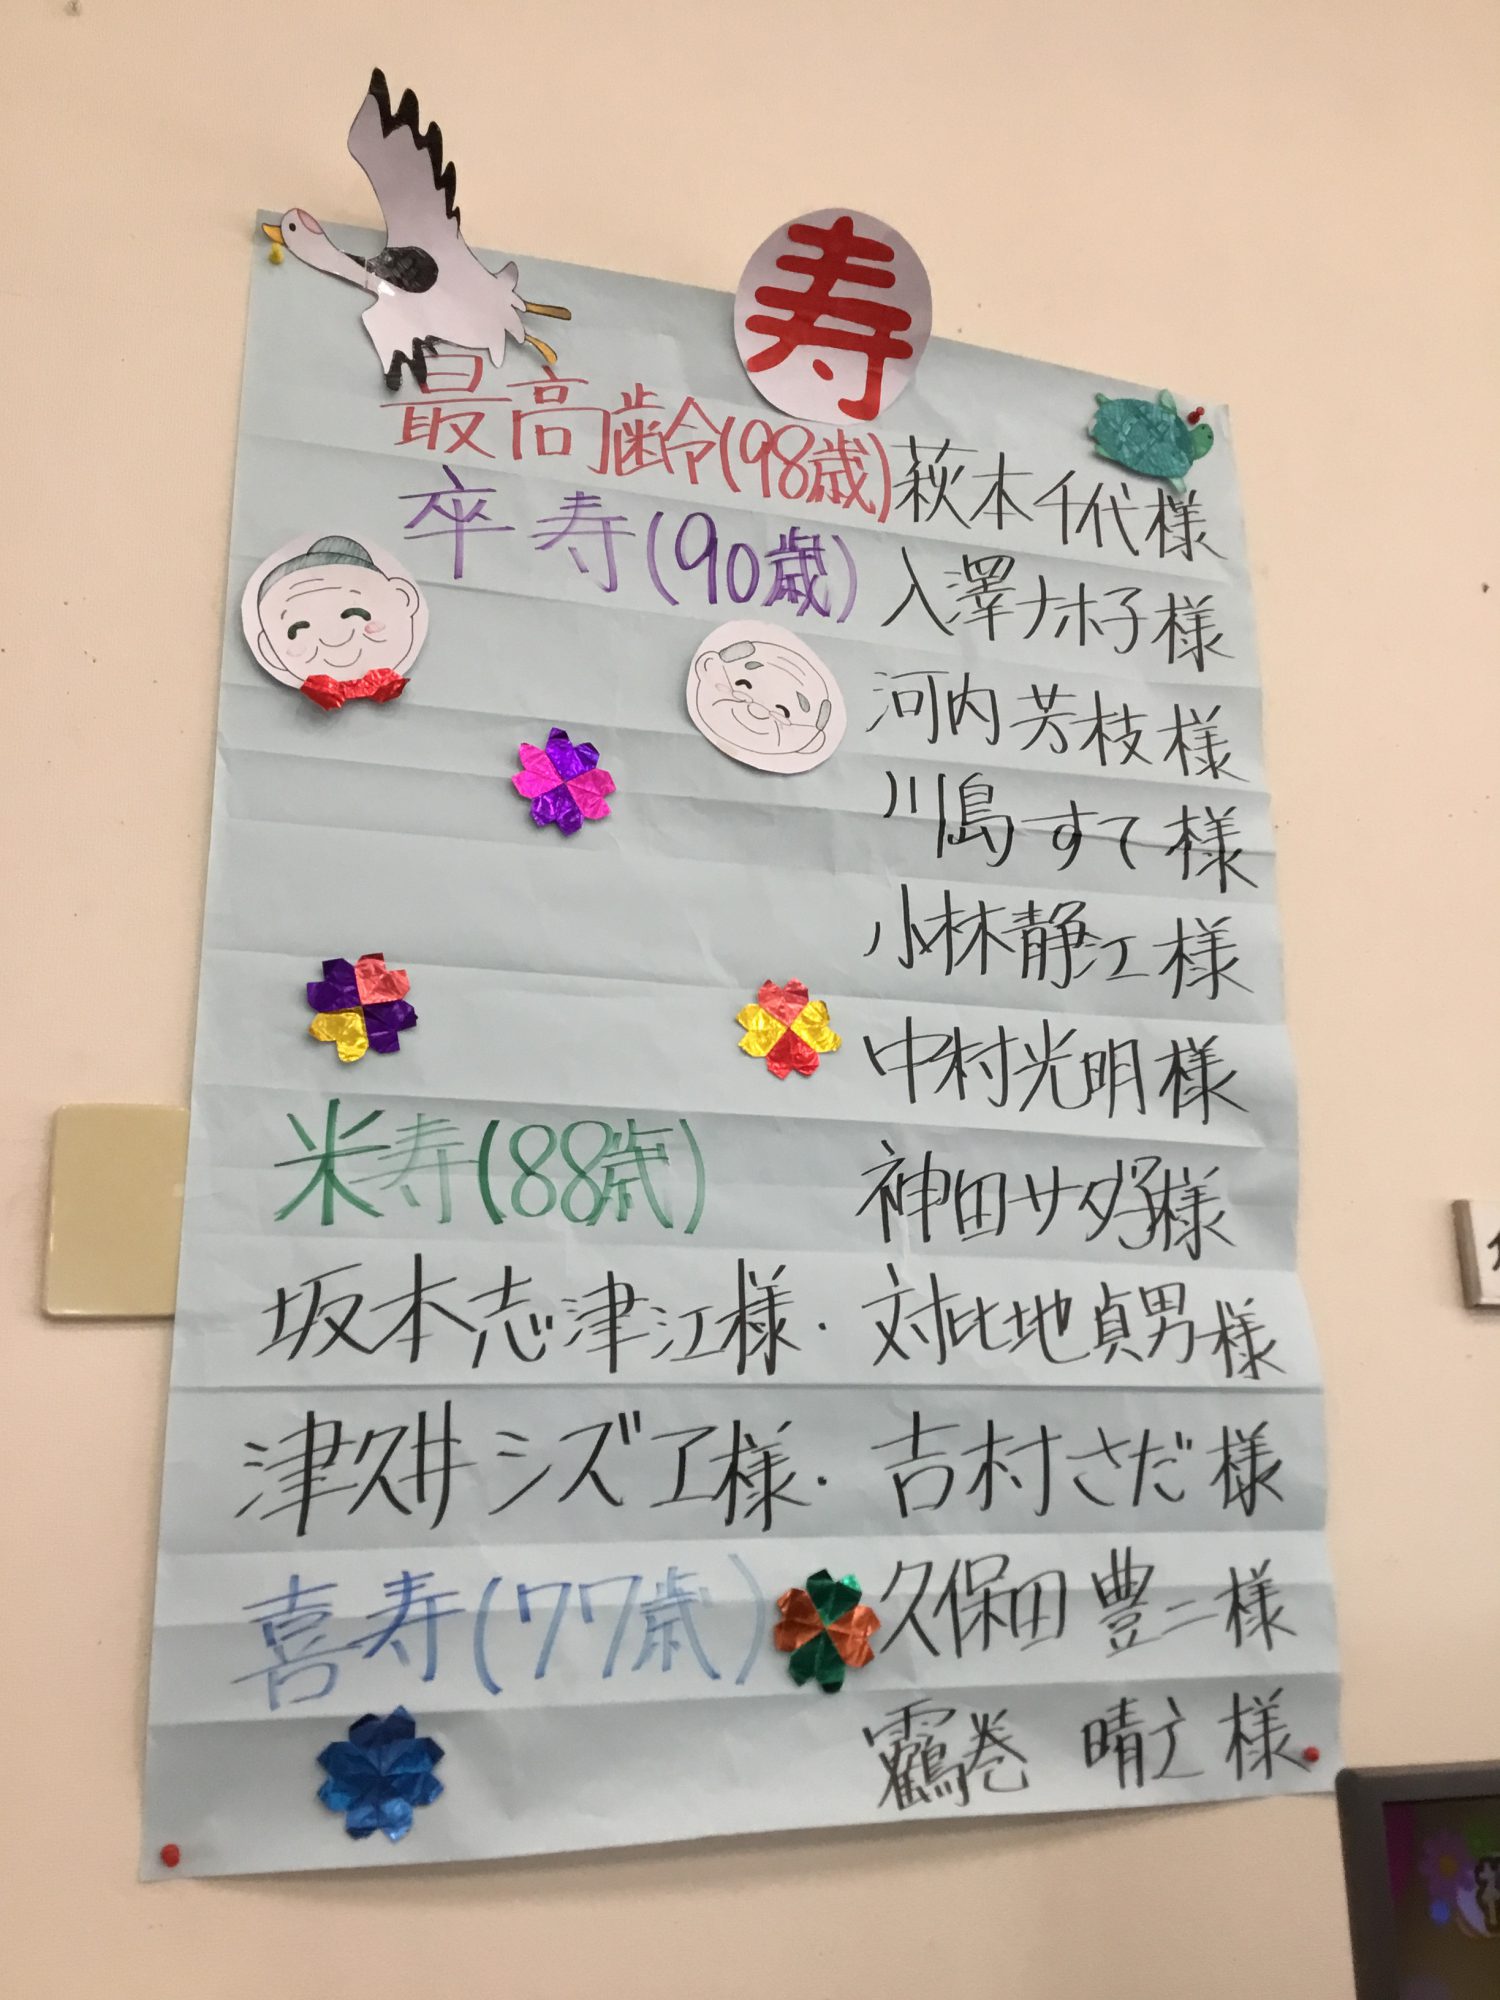 寿
最高齢(98歳) 萩本千代様
卒寿(90歳) 入澤ナホ子様
河内芳枝様
川島すて様
小林静江様
中村光明様
神田サダ子様
米寿(88歳)
坂本志津江様・対比地貞男様
津久井シズエ様・吉村さだ様
喜寿(77歳) 久保田豊二様
靏巻 晴立様